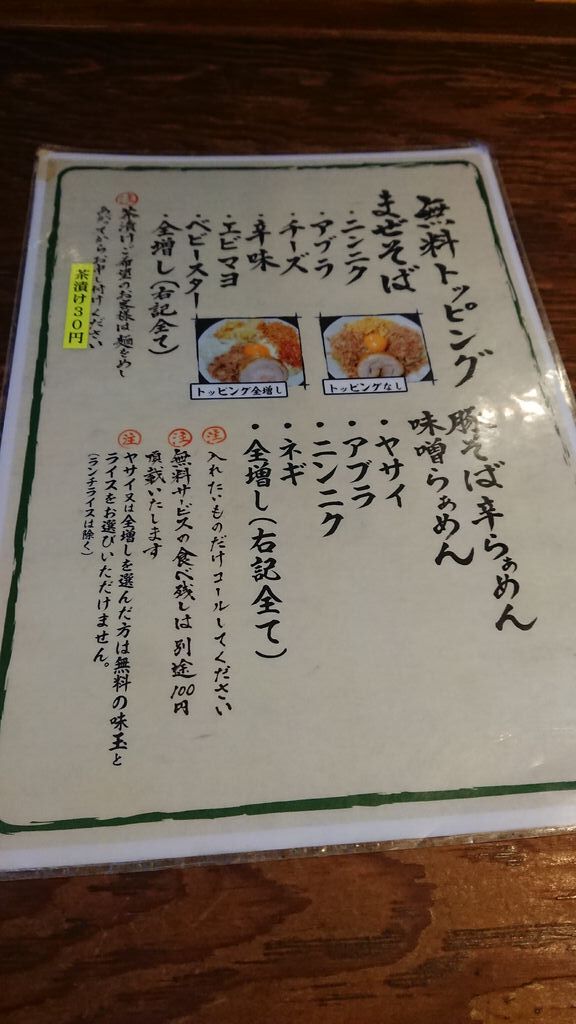 無料トッピング
まぜそば
・ニンニク
・アブラ
・チーズ
・辛味
・エビマヨ
・ベビースター
・全増し(右記全て)
トッピングなし
トッピング全増し
注 茶漬けご希望のお客様は麺をめし
あがってからお申し付けください
茶漬け30円
豚そば辛らぁめん
味噌らぁめん
・ヤサイ
・アブラ
・ニンニク
・ネギ
・全増し(右記全て)
注 入れたいものだけコールしてください
注 無料サービスの食べ残しは別途100円
頂戴いたします
注 ヤサイ又は全増しを選んだ方は無料の味玉と
ライスをお選びいただけません。
(ランチライスは除く)